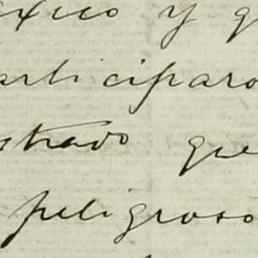 exico y q
articiparo
strado que
peligroso